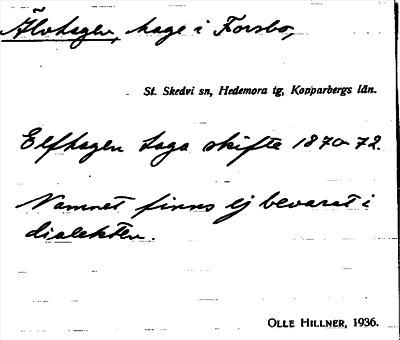 Älvhagen, hage i Forsbo,
St. Skedvi sn, Hedemora tg, Kopparbergs län.
Elfhagen Laga skifte 1870-72.
Namnet finns ej bevarat i
dialekten.
OLLE HILLNER, 1936.